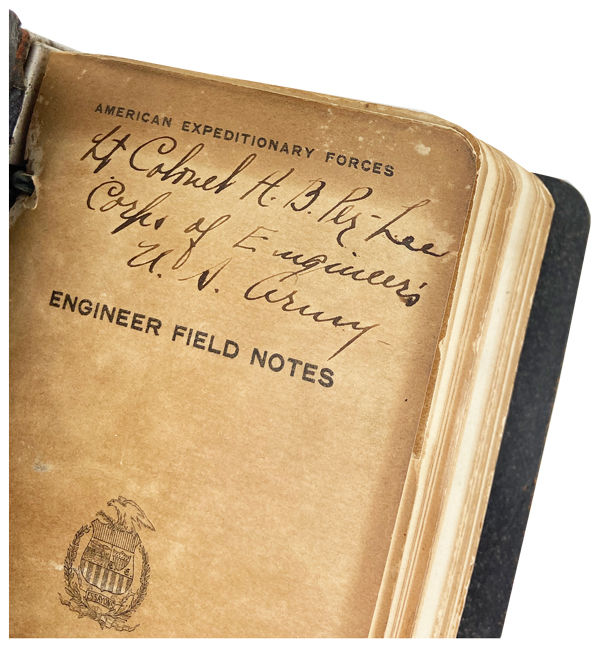 AMERICAN EXPEDITIONARY FORCES
Lt Colonel A. B. Rez-Lee
Corps of Engineers
U. S. Army
ENGINEER FIELD NOTES
ESSAYONS